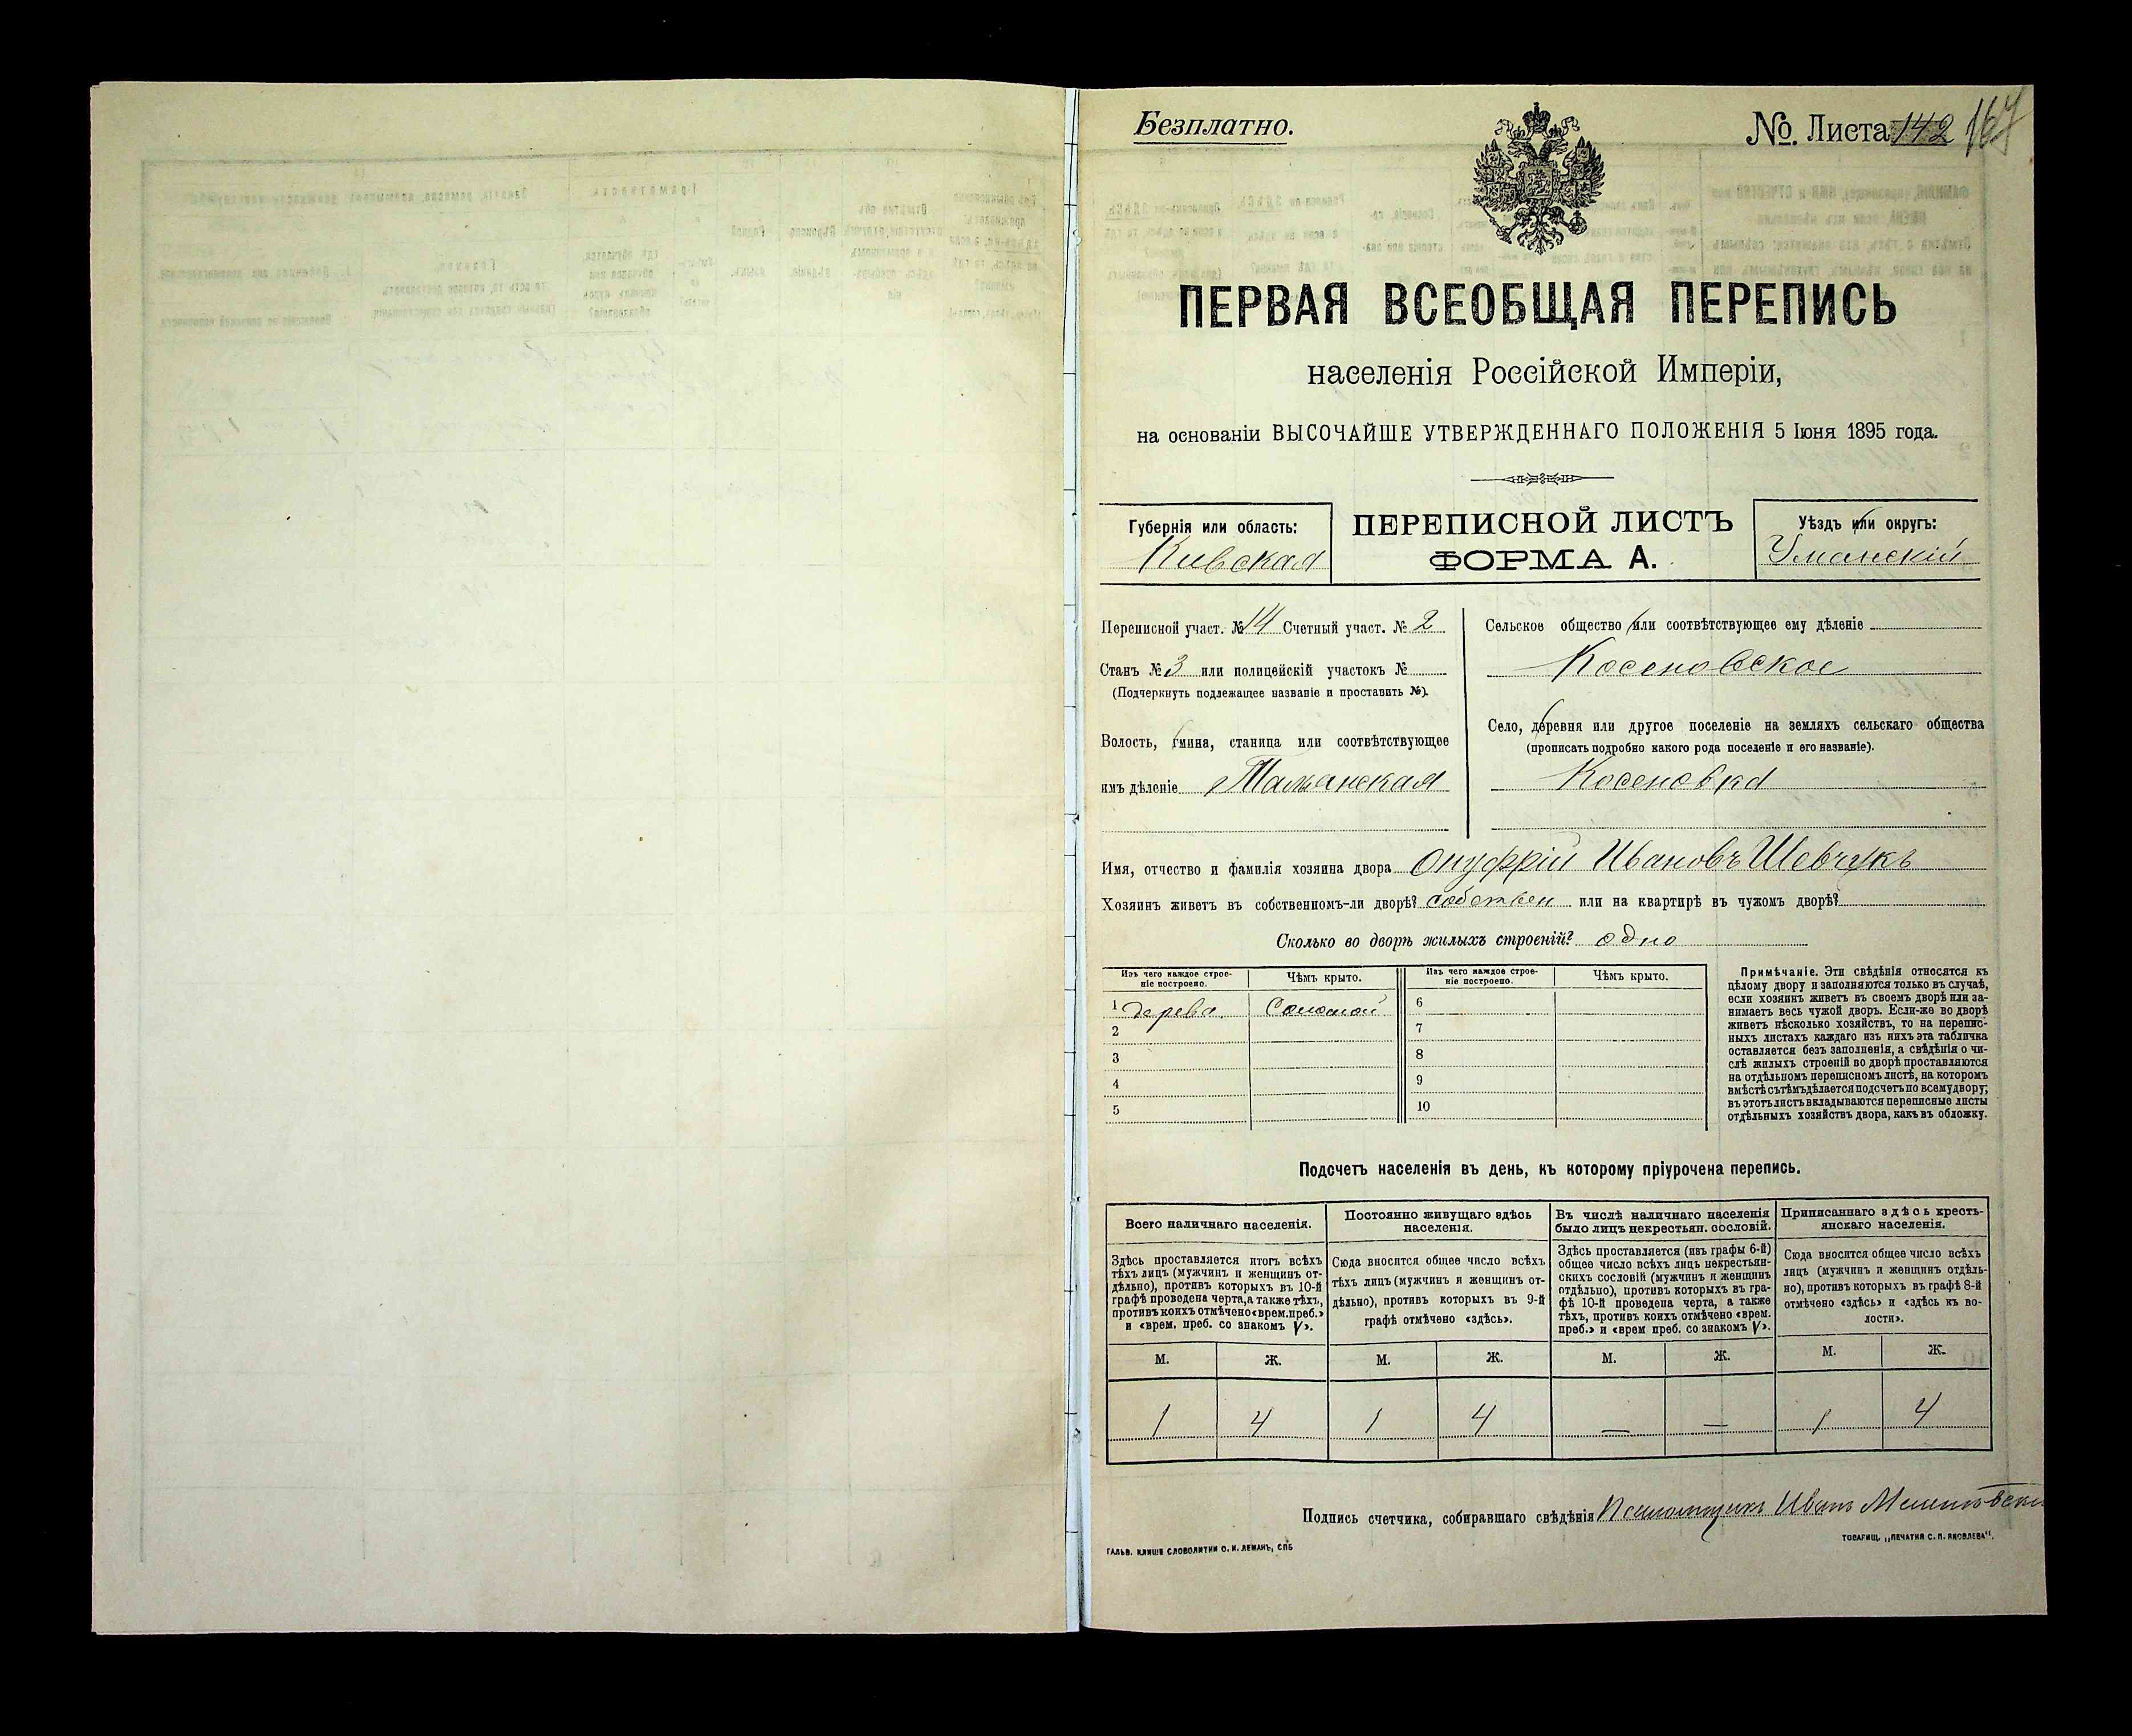 Безплатно.
№. Листа 142 167
ПЕРВАЯ ВСЕОБЩАЯ ПЕРЕПИСЬ
населенія Россійской Имперіи,
на основаніи ВЫСОЧАЙШЕ УТВЕРЖДЕННАГО ПОЛОЖЕНІЯ 5 Іюня 1895 года.
Губернія или область:
Кивская
ПЕРЕПИСНОЙ ЛИСТЪ
ФОРМА А.
Уѣздъ или округъ:
Уманскій
Переписной участ. № 14 Счетный участ. № 2
Станъ № 3 или полицейскій участокъ №
(Подчеркнуть подлежащее названіе и проставить №).
Волость, гмина, станица или соотвѣтствующее
имъ дѣленіе Тальянская
Сельское общество или соотвѣтствующее ему дѣленіе
Косеновское
Село, деревня или другое поселеніе на земляхъ сельскаго общества
(прописать подробно какого рода поселеніе и его названіе).
Косеновка
Имя, отчество и фамилія хозяина двора Онуфрій Ивановъ Шевчукъ
Хозяинъ живетъ въ собственномъ-ли дворѣ? собствен или на квартирѣ въ чужомъ дворѣ?
Сколько во дворѣ жилыхъ строеній? одно
Изъ чего каждое строе-
ніе построено.
Чѣмъ крыто.
Изъ чего каждое строе-
ніе построено.
Чѣмъ крыто.
1 дерева Соломой
2
3
4
5
6
7
8
9
10
Примѣчаніе. Эти свѣдѣнія относятся къ
цѣлому двору и заполняются только въ случаѣ,
если хозяинъ живетъ въ своемъ дворѣ или за-
нимаетъ весь чужой дворъ. Если-же во дворѣ
живетъ нѣсколько хозяйствъ, то на перепис-
ныхъ листахъ каждаго изъ нихъ эта табличка
оставляется безъ заполненія, а свѣдѣнія о чи-
слѣ жилыхъ строеній во дворѣ проставляются
на отдѣльномъ переписномъ листѣ, на которомъ
вмѣстѣ съ тѣмъ дѣлается подсчетъ по всему двору;
въ этотъ листъ вкладываются переписные листы
отдѣльныхъ хозяйствъ двора, какъ въ обложку.
Подсчетъ населенія въ день, къ которому пріурочена перепись.
Всего наличнаго населенія.
Здѣсь проставляется итогъ всѣхъ
тѣхъ лицъ (мужчинъ и женщинъ от-
дѣльно), противъ которыхъ въ 10-й
графѣ проведена черта, а также тѣхъ,
противъ коихъ отмѣчено «врем. преб.»
и «врем. преб. со знакомъ V».
Постоянно живущаго здѣсь
населенія.
Сюда вносится общее число всѣхъ
тѣхъ лицъ (мужчинъ и женщинъ от-
дѣльно), противъ которыхъ въ 9-й
графѣ отмѣчено «здѣсь».
Въ числѣ наличнаго населенія
было лицъ некрестьян. сословій.
Здѣсь проставляется (изъ графы 6-й)
общее число всѣхъ лицъ некрестьян-
скихъ сословій (мужчинъ и женщинъ
отдѣльно), противъ которыхъ въ гра-
фѣ 10-й проведена черта, а также
тѣхъ, противъ коихъ отмѣчено «врем.
преб.» и «врем преб. со знакомъ V».
Приписаннаго здѣсь кресть-
янскаго населенія.
Сюда вносится общее число всѣхъ
лицъ (мужчинъ и женщинъ отдѣль-
но), противъ которыхъ въ графѣ 8-й
отмѣчено «здѣсь» и «здѣсь къ во-
лости».
М. Ж. М. Ж. М. Ж. М. Ж.
1 4 1 4 — — 1 4
Подпись счетчика, собиравшаго свѣдѣнія Иванъ
ГАЛЬВ. КЛИШЕ СЛОВОЛИТНИ О. И. ЛЕМАНЪ, СПБ
ТОВАРИЩ. „ПЕЧАТНЯ С. П. ЯКОВЛЕВА".